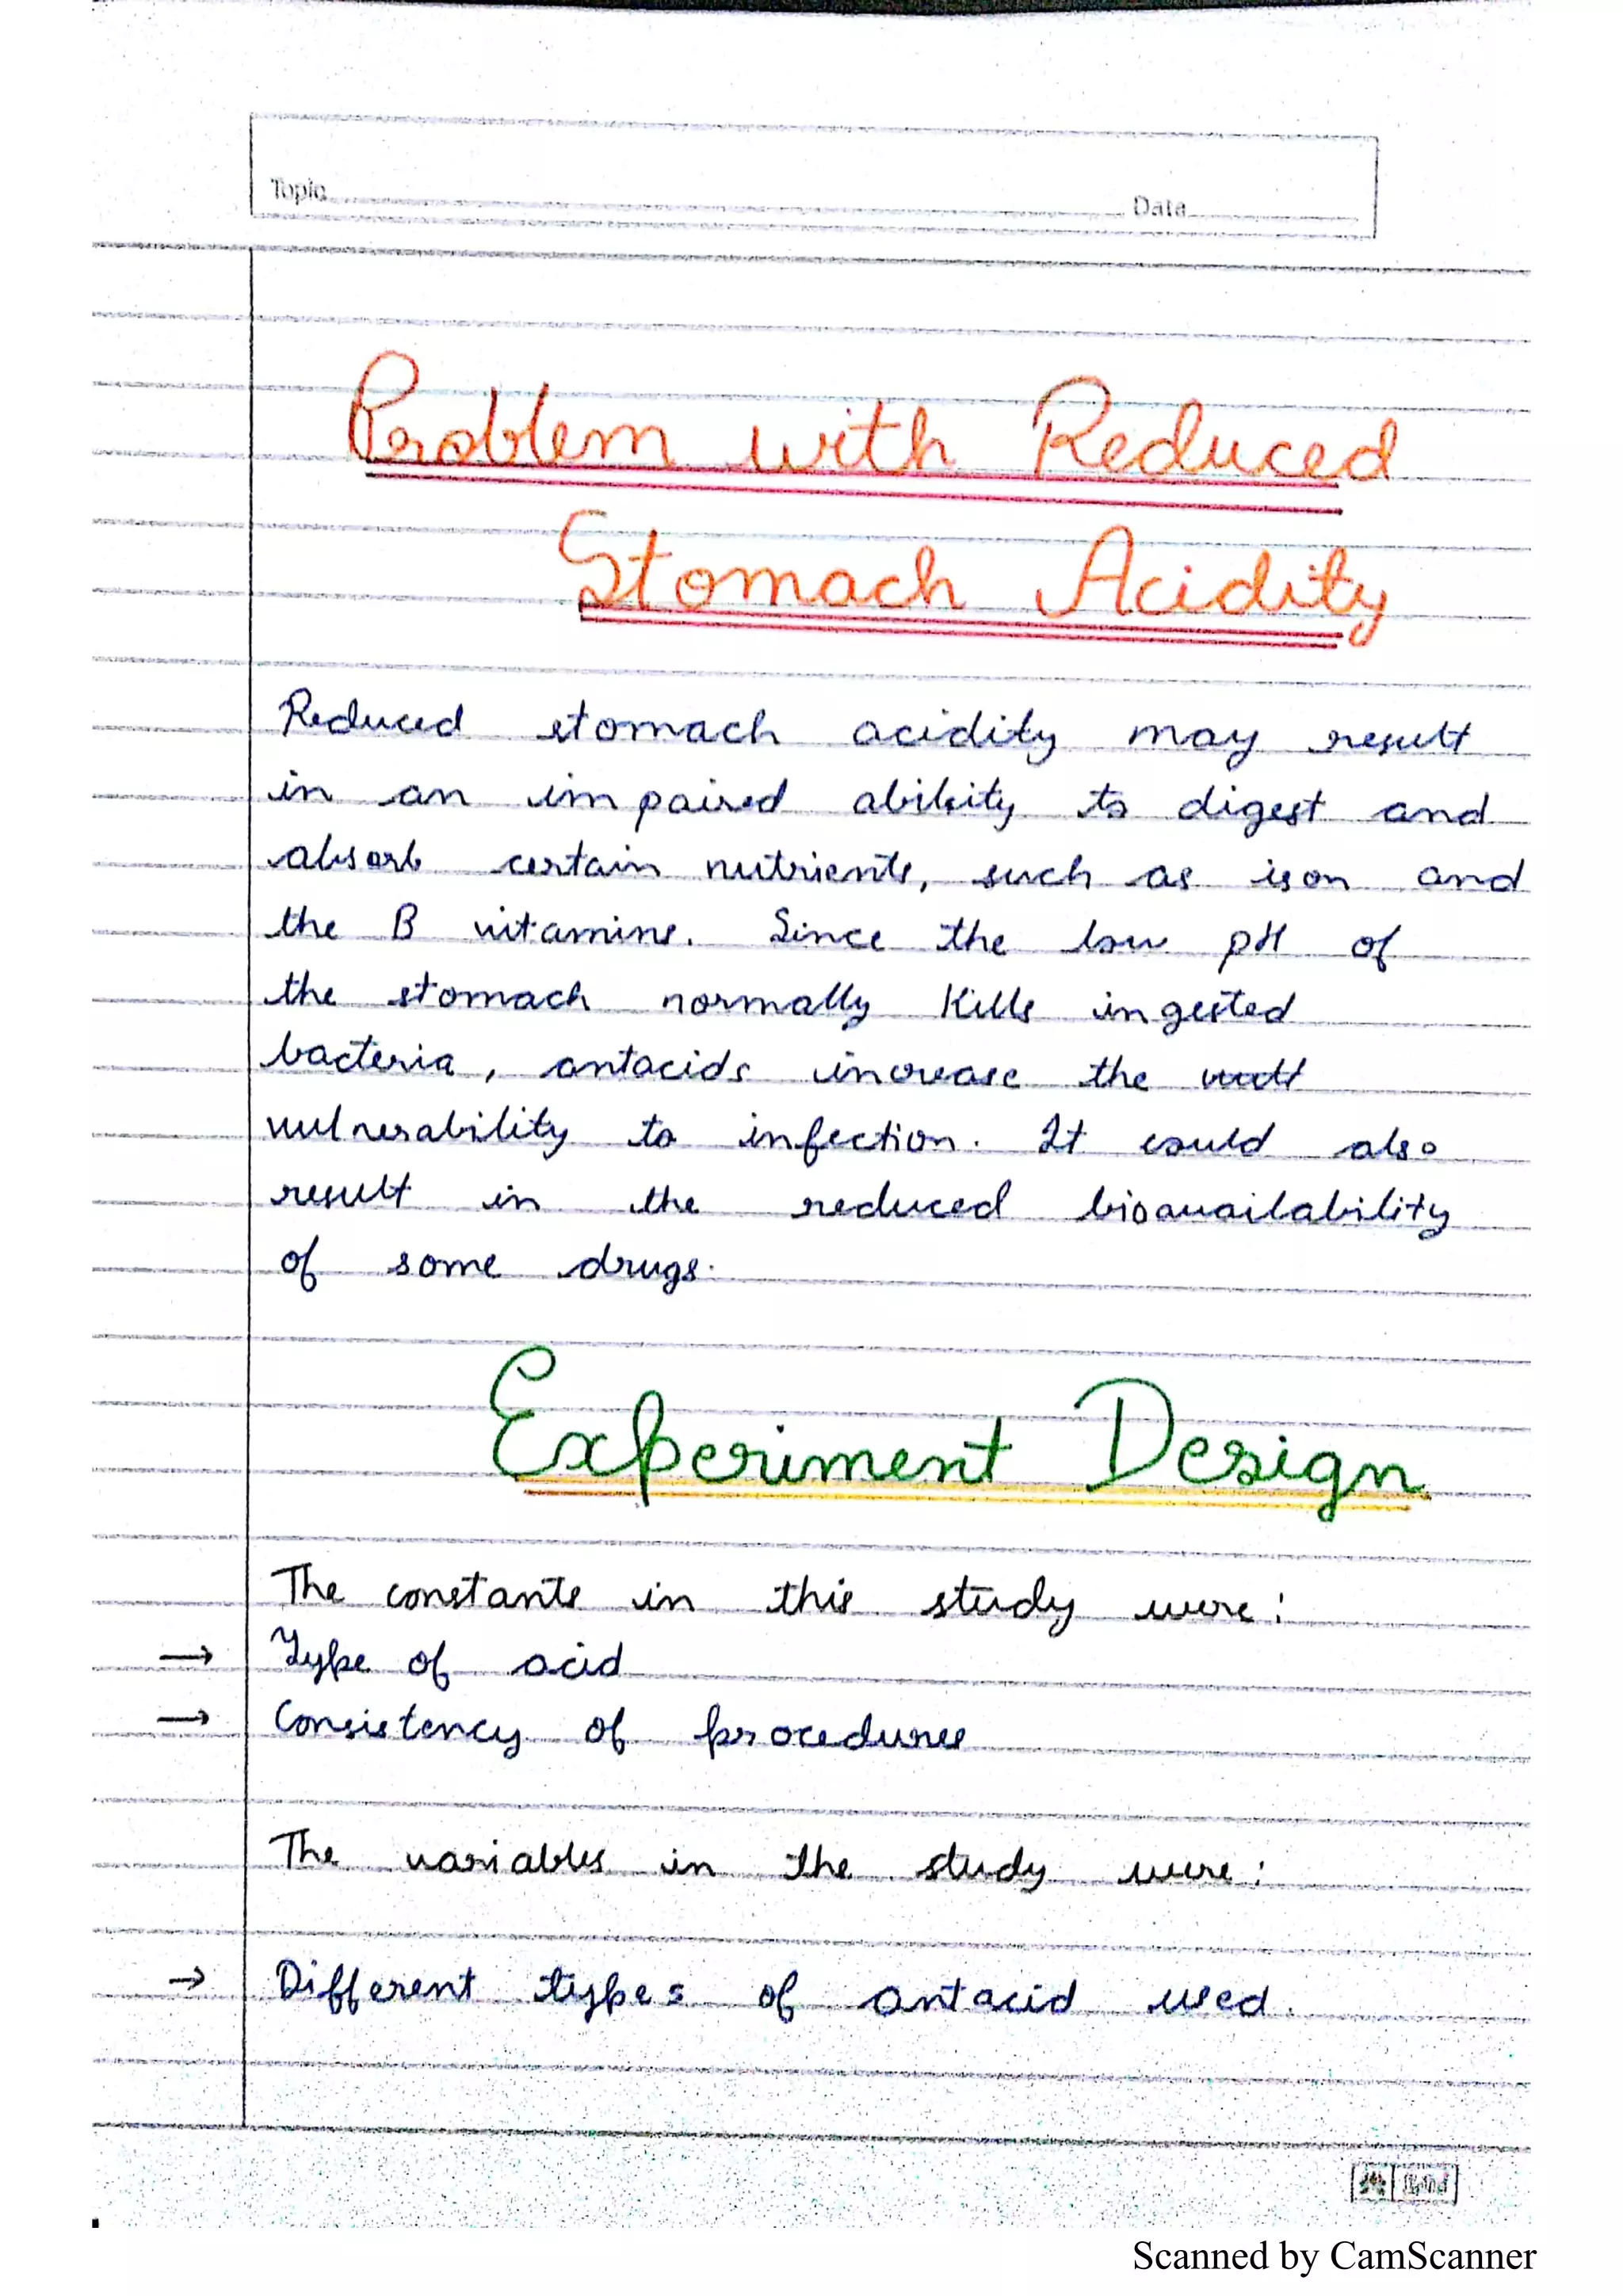 Topic Date
Problem with Reduced
Stomach Acidity
Reduced stomach acidity may result
in an impaired ability to digest and
absorb certain nutrients, such as iron and
the B vitamins. Since the low pH of
the stomach normally kills ingested
bacteria, antacids increase the
vulnerability to infection. It could also
result in the reduced bioavailability
of some drugs.
Experiment Design
The constants in this study were:
→ Type of acid
→ Consistency of procedures
The variables in the study were:
→ Different types of antacid used.
Scanned by CamScanner